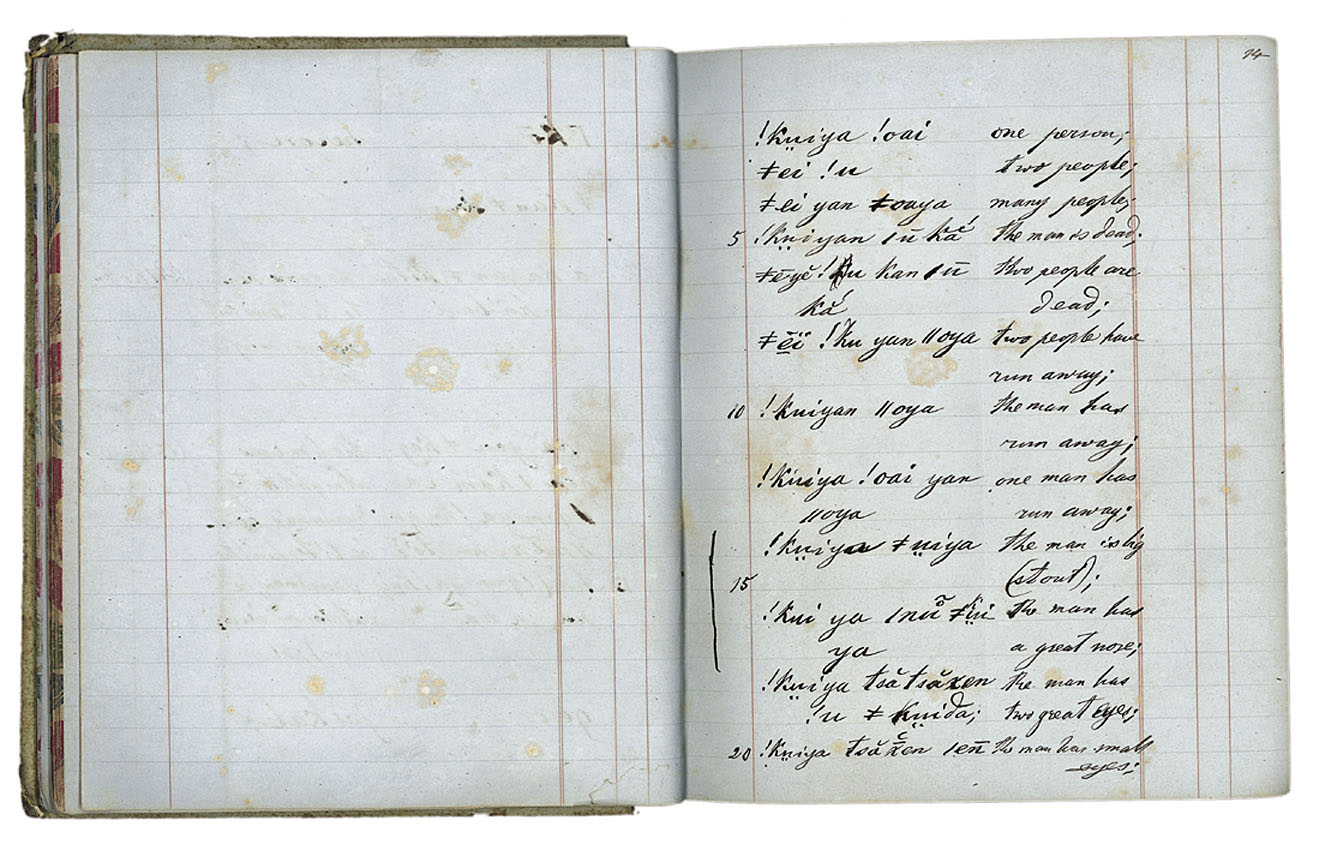 94
!kṳiya !oai one person;
ǂei !u two people;
ǂei yan ǂoaya many people;
5 !kṳiyan /ūkắ the man is dead;
ǂēyĕ !ku kan /ū two people are
kắ dead;
ǂĕï !ku yan //oya two people have
run away;
10 !kuiyan //oya the man has
run away;
!kuiya !oai yan one man has
//oya run away;
!kṳiya ǂṳiya the man is big
15 (stout);
!kui ya /nu the man has
ya a great nose;
!kṳiya tsătsăxen the man has
!u ǂkṳida; two great eyes;
20 !kṳiya tsăxen /en̄ the man has small
eyes;